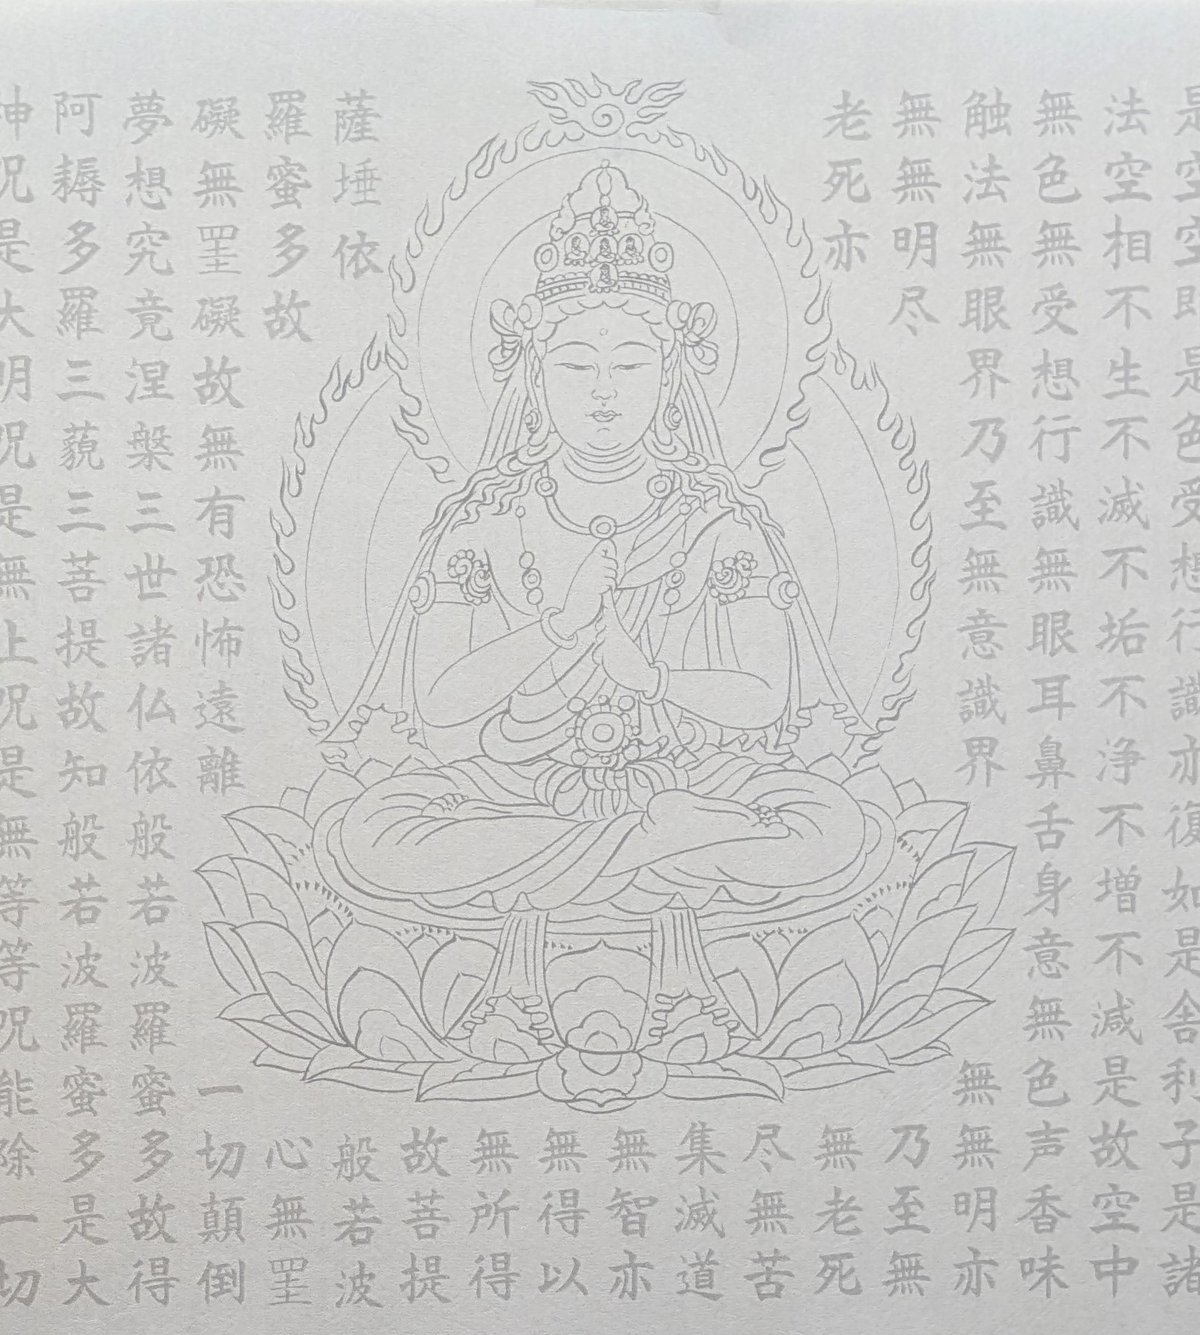 是空空即是色受想行識亦復如是舎利子是諸
法空相不生不滅不垢不浄不増不減是故空中
無色無受想行識無眼耳鼻舌身意無色声香味
触法無眼界乃至無意識界 無無明亦
無無明尽 乃至無
老死亦 無老死
尽無苦
集滅道
無智亦
無得以
無所得
故菩提
薩埵依 般若波
羅蜜多故 心無罣
礙無罣礙故無有恐怖遠離 一切顛倒
夢想究竟涅槃三世諸仏依般若波羅蜜多故得
阿耨多羅三藐三菩提故知般若波羅蜜多是大
神呪是大明呪是無上呪是無等等呪能除一切